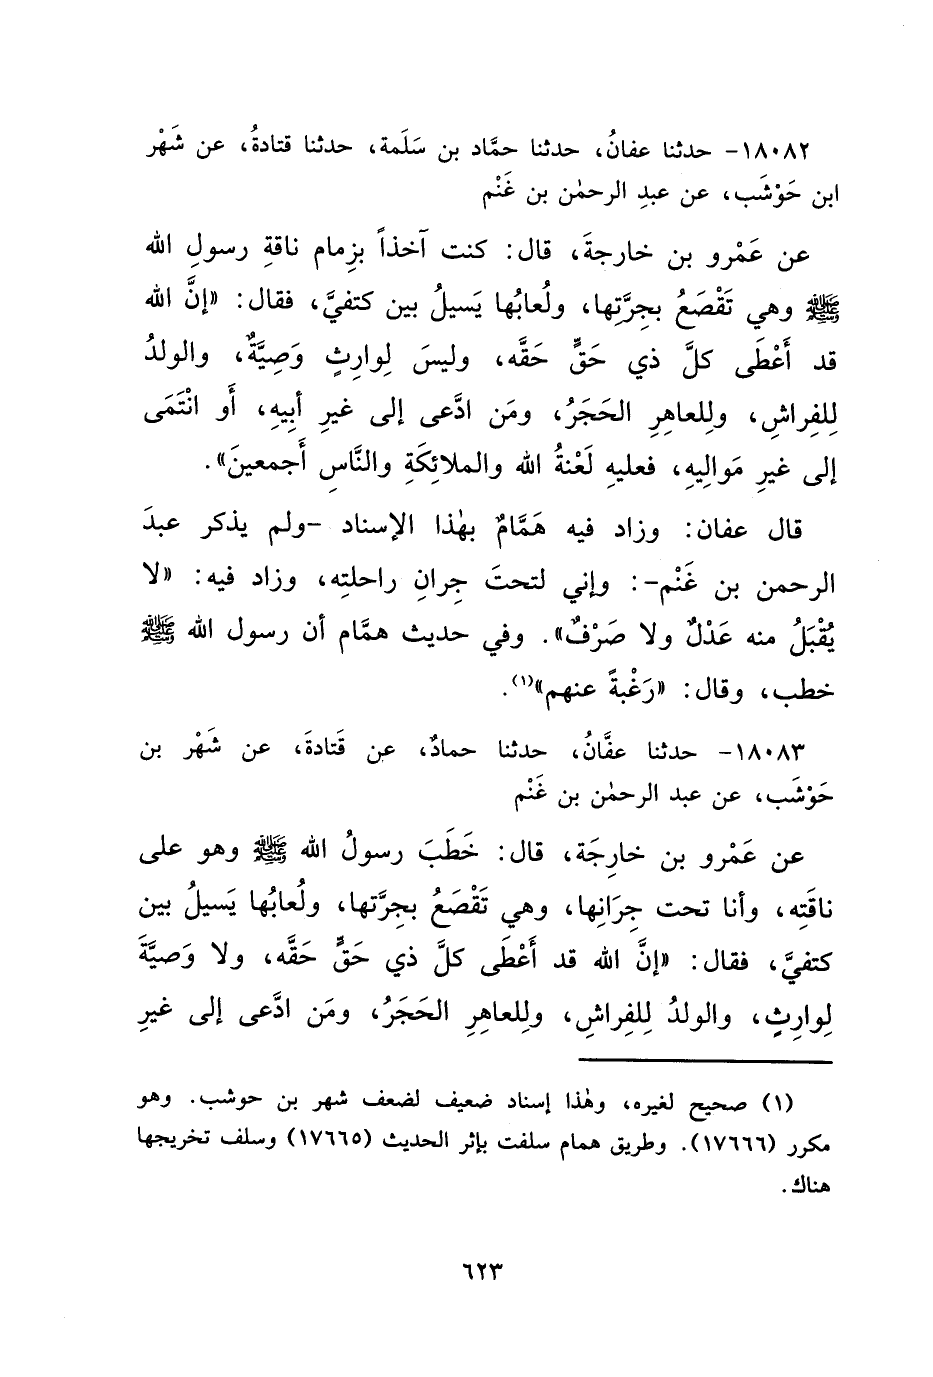 ١٨٠٨٢- حدثنا عفانُ، حدثنا حمَّاد بن سَلَمة، حدثنا قتادةُ، عن شَهْر
ابن حَوْشَب، عن عبدِ الرحمٰن بن غَنْم
عن عَمْرو بن خارجةَ، قال: كنت آخذاً بزِمام ناقةِ رسولِ الله
ﷺ وهي تَقْصَعُ بجِرَّتِها، ولُعابُها يَسيلُ بين كتفيَّ، فقال: «إنَّ الله
قد أَعْطَى كلَّ ذي حَقٍّ حَقَّه، وليسَ لِوارِثٍ وَصِيَّةٌ، والولدُ
لِلفِراشِ، ولِلعاهِرِ الحَجَرُ، ومَن ادَّعى إلى غيرِ أبيهِ، أَو انْتَمَى
إلى غيرِ مَوالِيهِ، فعليهِ لَعْنةُ الله والملائِكَةِ والنَّاسِ أَجمعينَ».
قال عفان: وزاد فيه هَمَّامٌ بهٰذا الإسناد -ولم يذكر عبدَ
الرحمن بن غَنْم-: وإني لتحتَ جِرانِ راحلتِه، وزاد فيه: «لا
يُقْبَلُ منه عَدْلٌ ولا صَرْفٌ». وفي حديث همَّام أن رسول الله ﷺ
خطب، وقال: «رَغْبةً عنهم»(١).
١٨٠٨٣- حدثنا عفَّانُ، حدثنا حمادٌ، عن قَتادةَ، عن شَهْر بن
حَوْشَب، عن عبد الرحمٰن بن غَنْم
عن عَمْرو بن خارِجَة، قال: خَطَبَ رسولُ الله ﷺ وهو على
ناقَتِه، وأنا تحت جِرَانِها، وهي تَقْصَعُ بجِرَّتها، ولُعابُها يَسيلُ بين
كتفيَّ، فقال: «إنَّ الله قد أَعْطَى كلَّ ذي حَقٍّ حَقَّه، ولا وَصيَّةَ
لِوارِثٍ، والولدُ لِلفِراشِ، ولِلعاهِرِ الحَجَرُ، ومَن ادَّعى إلى غيرِ
(١) صحيح لغيره، وهٰذا إسناد ضعيف لضعف شهر بن حوشب. وهو
مكرر (١٧٦٦٦). وطريق همام سلفت بإثر الحديث (١٧٦٦٥) وسلف تخريجها
هناك.
٦٢٣